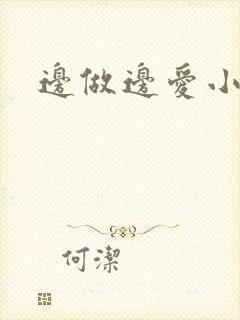 邊做邊愛小
何潔